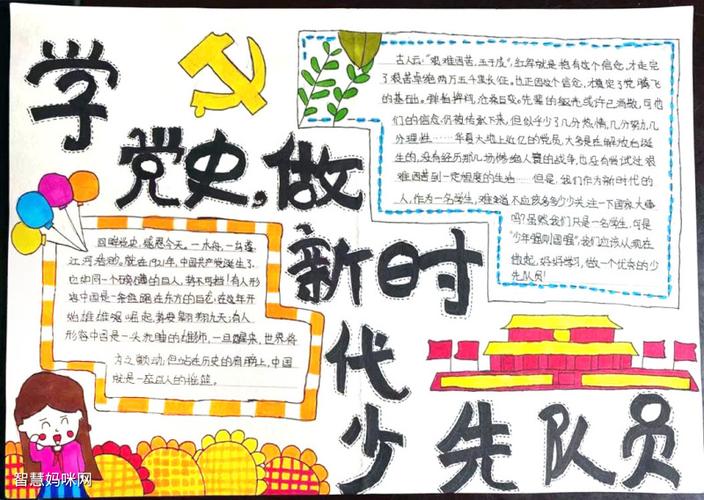 学
党史,做
新时
代
少先队员
古人云:"艰难困苦,玉于成",红军就是抱有这个信念,才走完
了艰苦卓绝两万五千里长征。也正因这个信念,才奠定了党腾飞
的基础。
们的信念仍被传承下来,但似乎少了几分热情,几分努力,几
分理性……华夏大地上近亿的党员,大多是在解放后诞
生的,没有经历那几场的战争,也没有尝试过艰
难困苦到一定程度的生活……但是,我们作为新时代的
人,作为一名学生,难道不应该多多少少关注一下国家大事
吗?虽然我们只是一名学生,可是
"少年强则国强",我们应该从现在
做起,好好学习,做一个优秀的少
先队员!
回眸历史,感恩今天。一水舟,一
江河浩瀚,就在1921年,中国共产党诞生了
也如同一个磅礴的巨人,势不可挡!有人形
容中国是一条盘踞在东方的巨龙,在这年开
始雄雄崛起,翱翔九天;有人
形容中国是一头沉睡的雄狮,一旦醒来,世界将
为之颤动。但站在历史的肩膀上,中国
就是一座人的摇篮。
智慧妈咪网